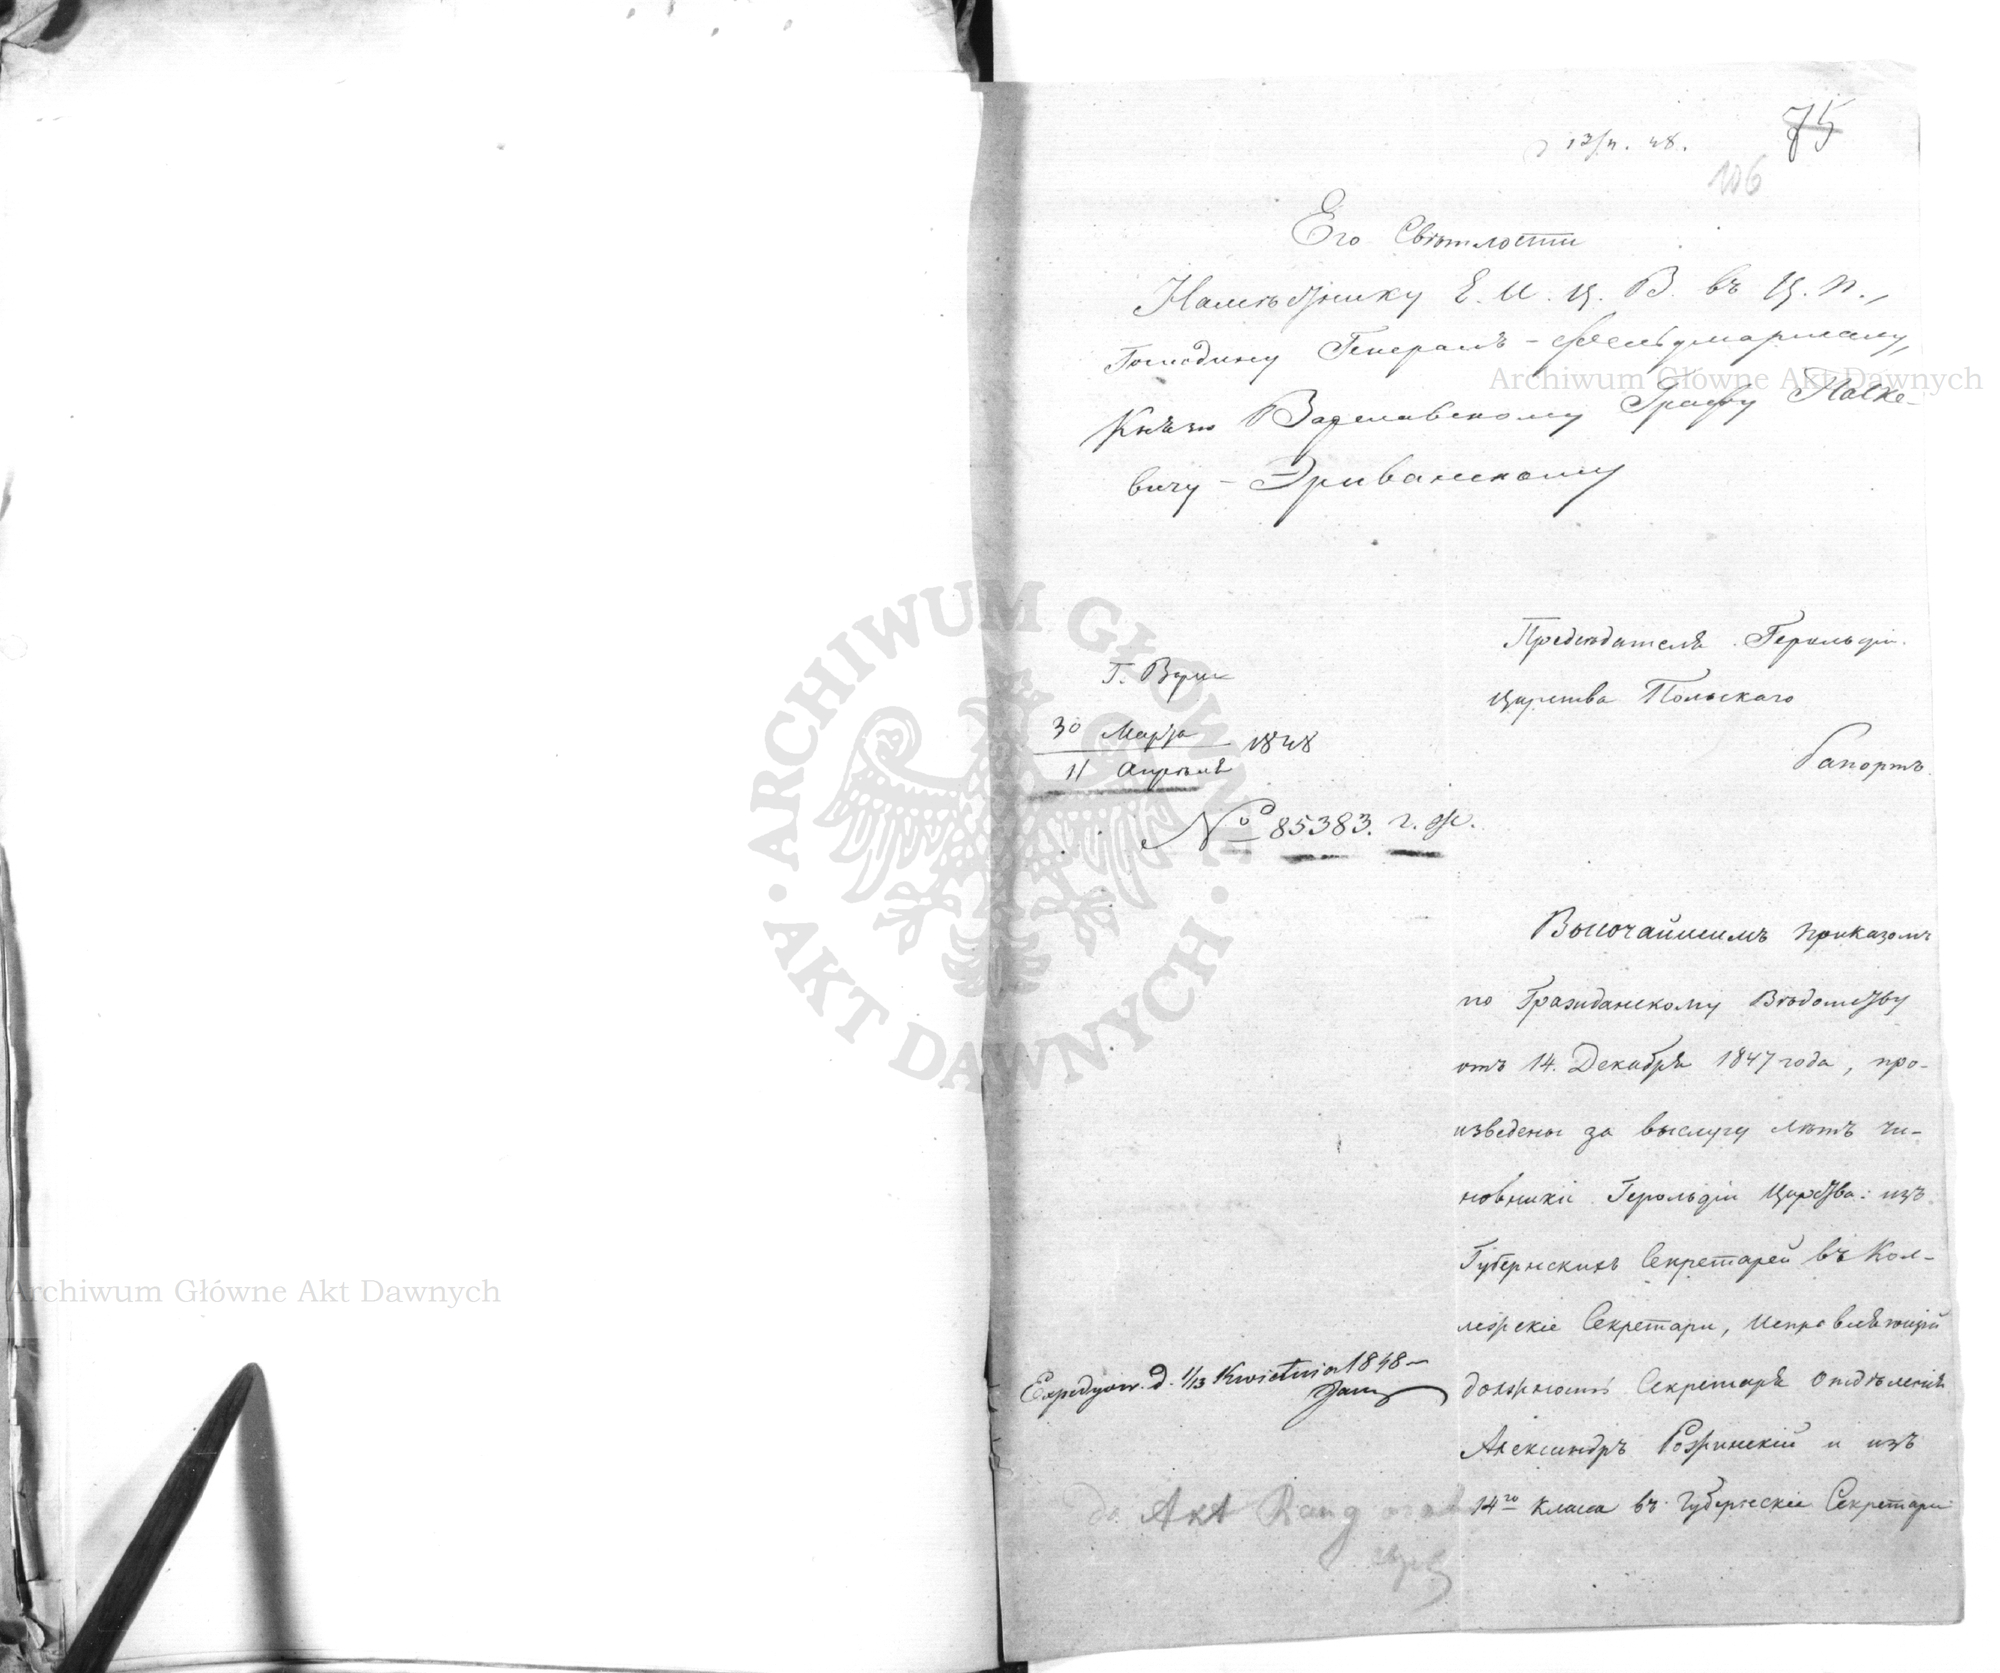 13/4. 48.
75
106
Его Свѣтлости
Намѣстнику Е. И. Ц. В. въ Ц. П.,
Господину Генералъ-Фельдмаршалу,
Князю Варшавскому Графу Паске-
вичу-Эриванскому
Предсѣдателя Герольдіи
Царства Польскаго
Рапортъ
Г. Варш
30 Марта
11 Апрѣля 1848
№ 85383.
Высочайшимъ приказомъ
по Гражданскому Вѣдомству
отъ 14. Декабря 1847 года, про-
изведены за выслугу лѣтъ чи-
новники Герольдіи Царства: изъ
Губернскихъ Секретарей въ Кол-
лежскіе Секретари, Исправляющій
должность Секретаря Отдѣленія
Александръ Рожинскій и изъ
14го класса въ Губернскіе Секретари
Expedyow. d. 1/13 Kwietnia 1848
do Akt Rang
Archiwum Główne Akt Dawnych
Archiwum Główne Akt Dawnych
ARCHIWUM GŁÓWNE · AKT DAWNYCH ·